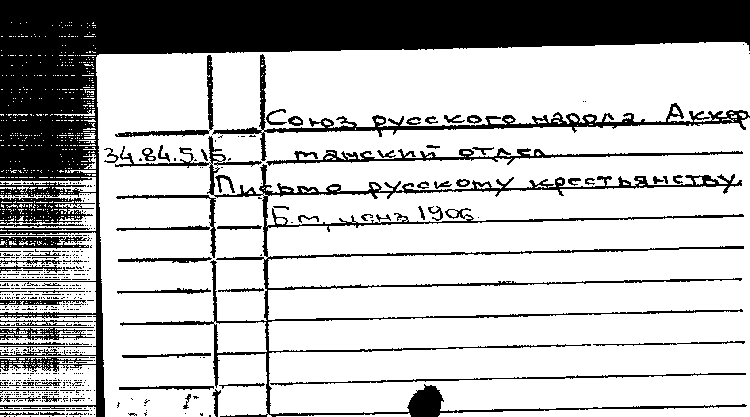 Союз русского народа. Аккер
34.84.5.15. манский отдел
Письмо русскому крестьянству.
Б.м., ценз 1906